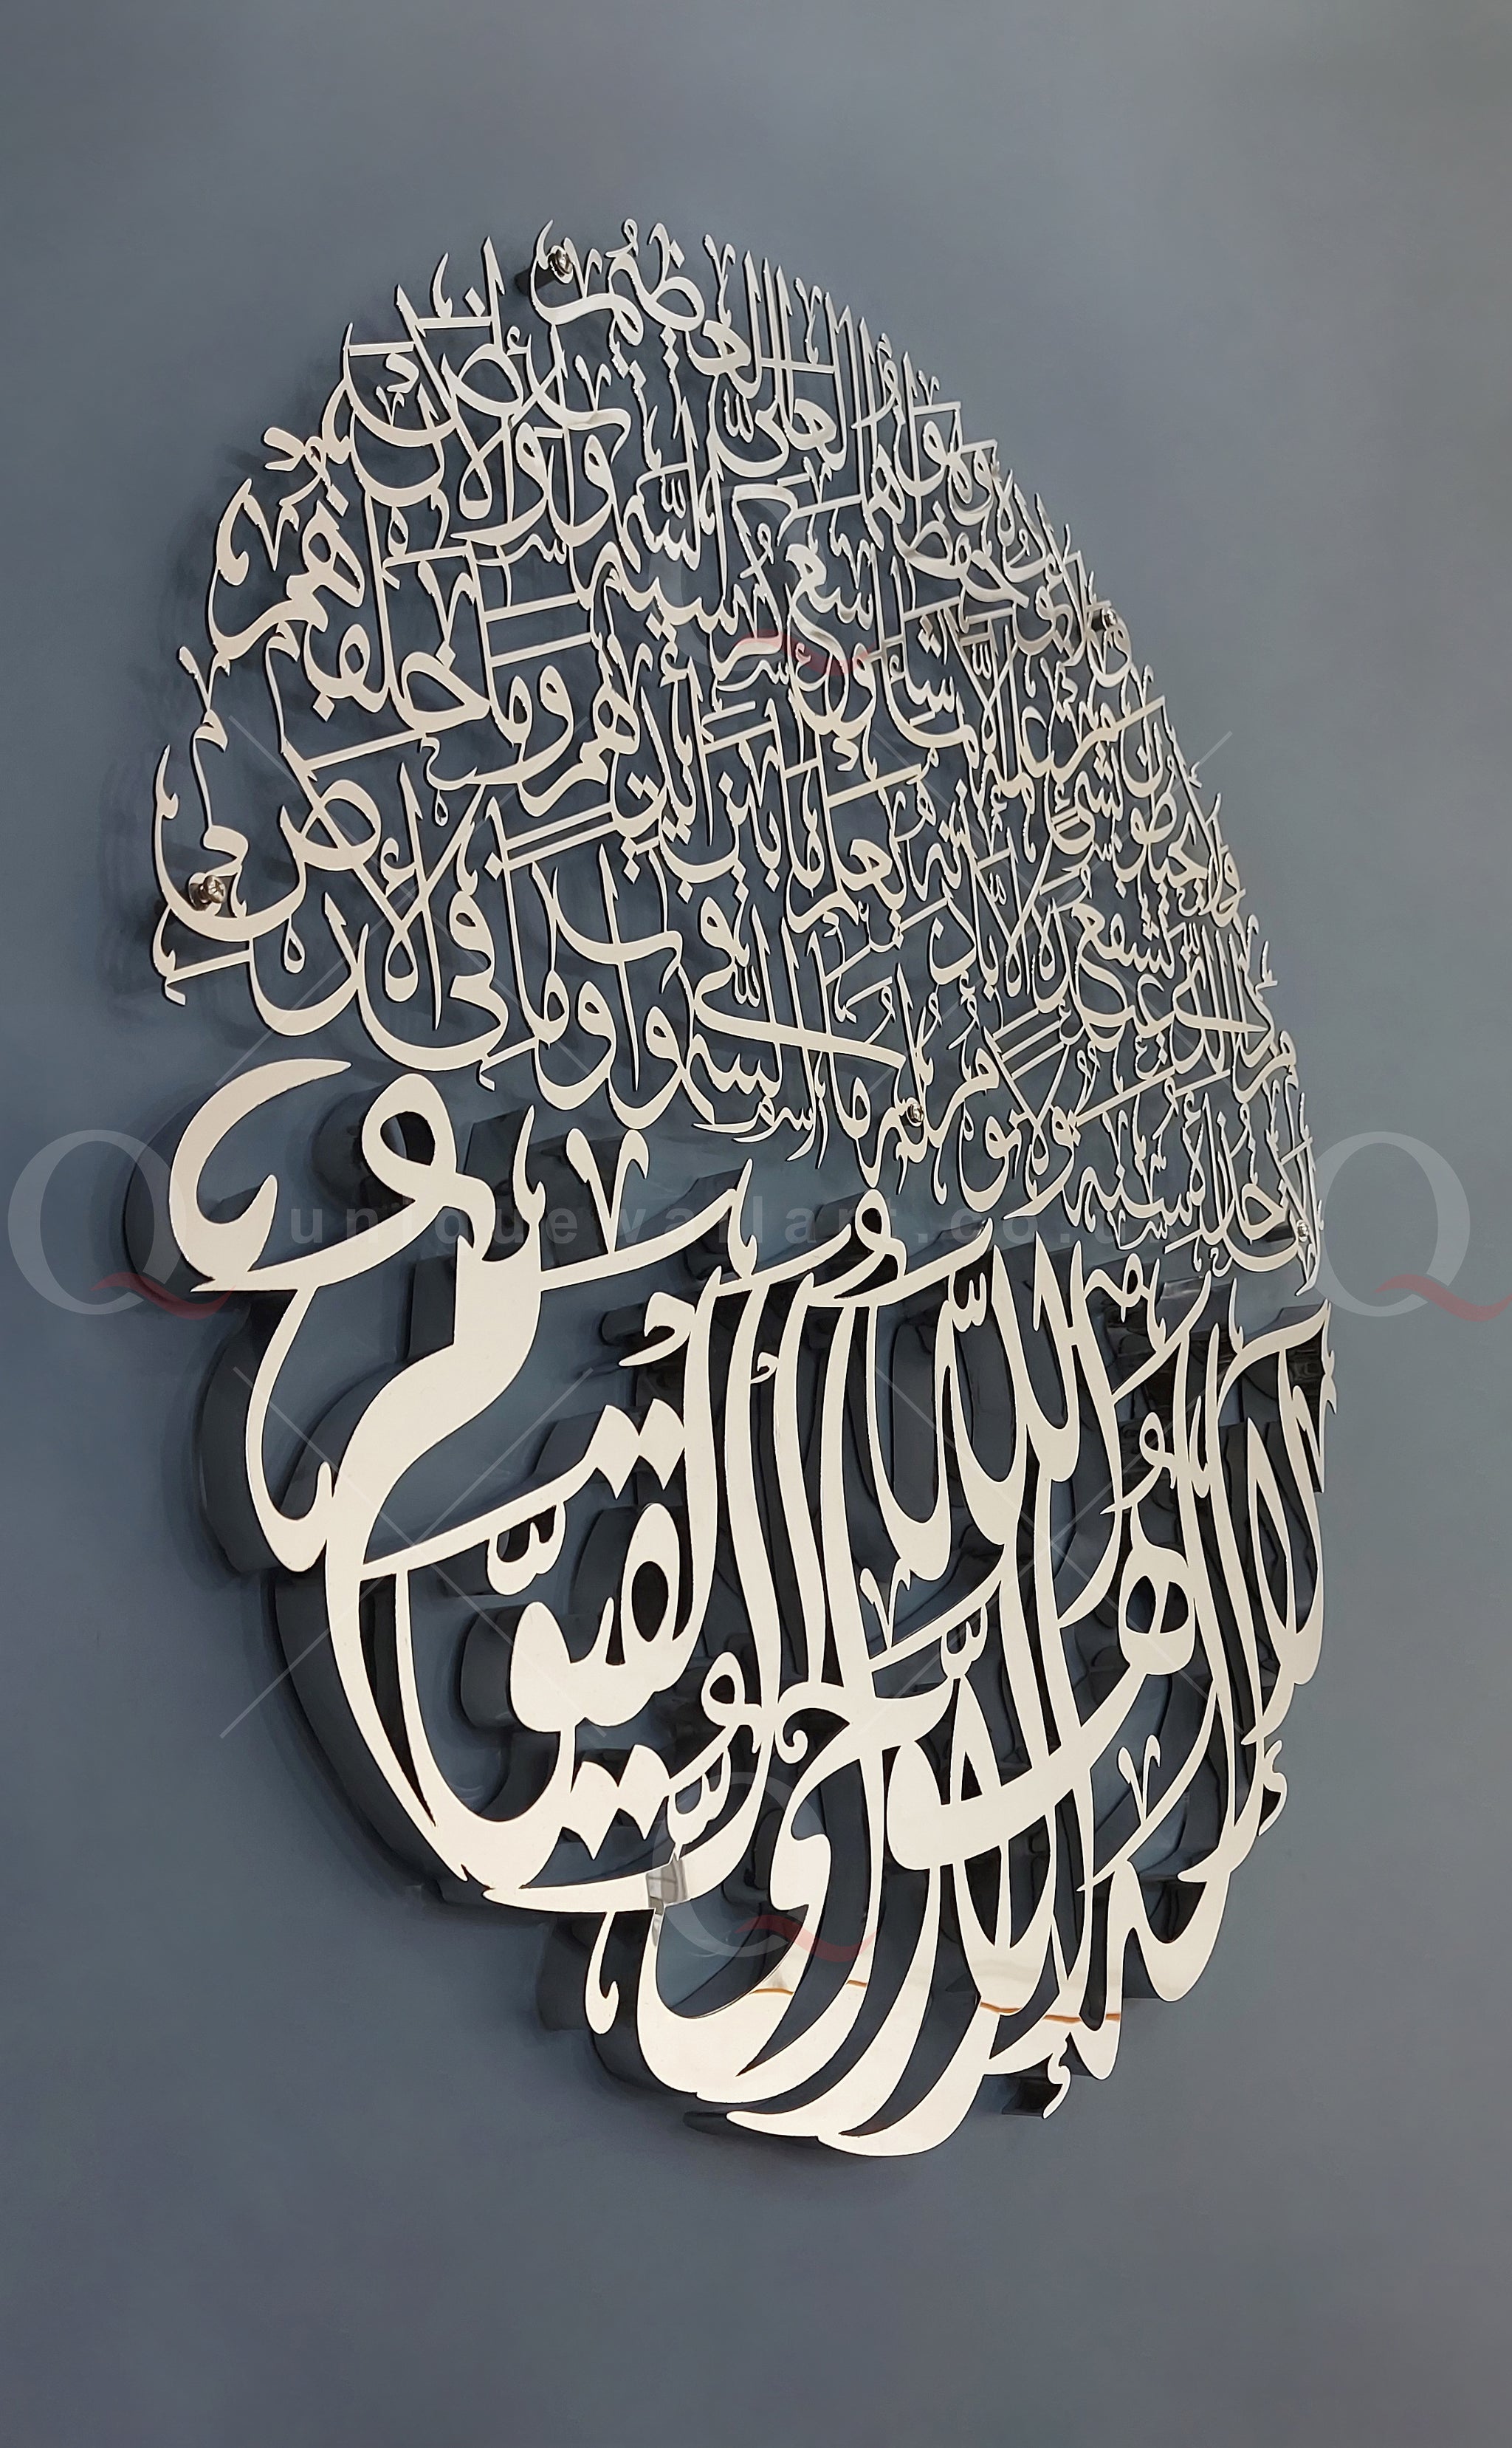 الله لا إله إلا هو الحي القيوم
لا تأخذه سنة ولا نوم له ما في السموات وما في الأرض
من ذا الذي يشفع عنده إلا بإذنه يعلم ما بين أيديهم وما خلفهم
ولا يحيطون بشيء من علمه إلا بما شاء وسع كرسيه السموات والأرض
ولا يؤده حفظهما وهو العلي العظيم
uniquewallart.co.u